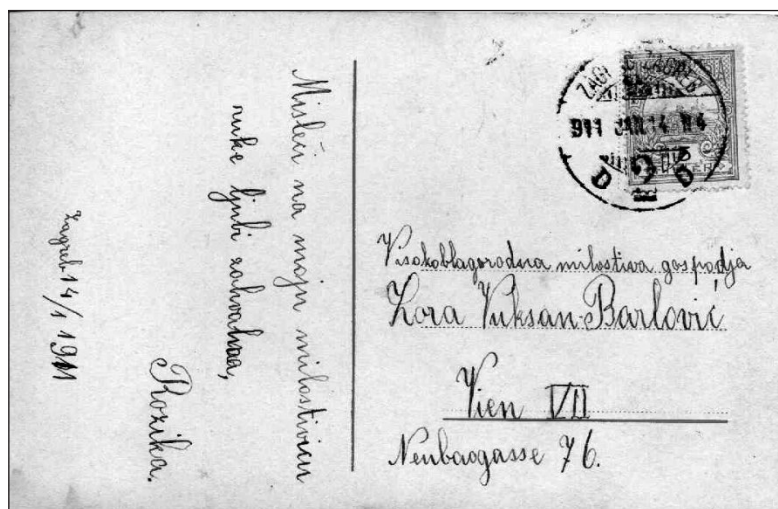 Misleći na moju milostivicu
ruke ljubi zahvalna,
Rozika.
Zagreb. 14/1 1911
ZAGREB
911 JAN. 14
Visokoblagorodna milostiva gospodja
Zora Vuksan-Barlović
Vien VII
Neubaugasse 76.